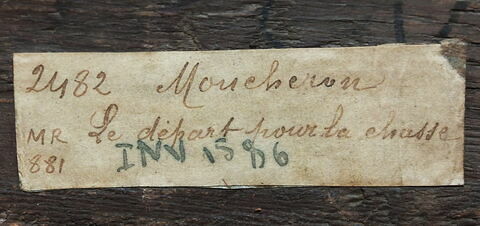 2482 Moucheron
MR Le départ pour la chasse
881 INV 1586